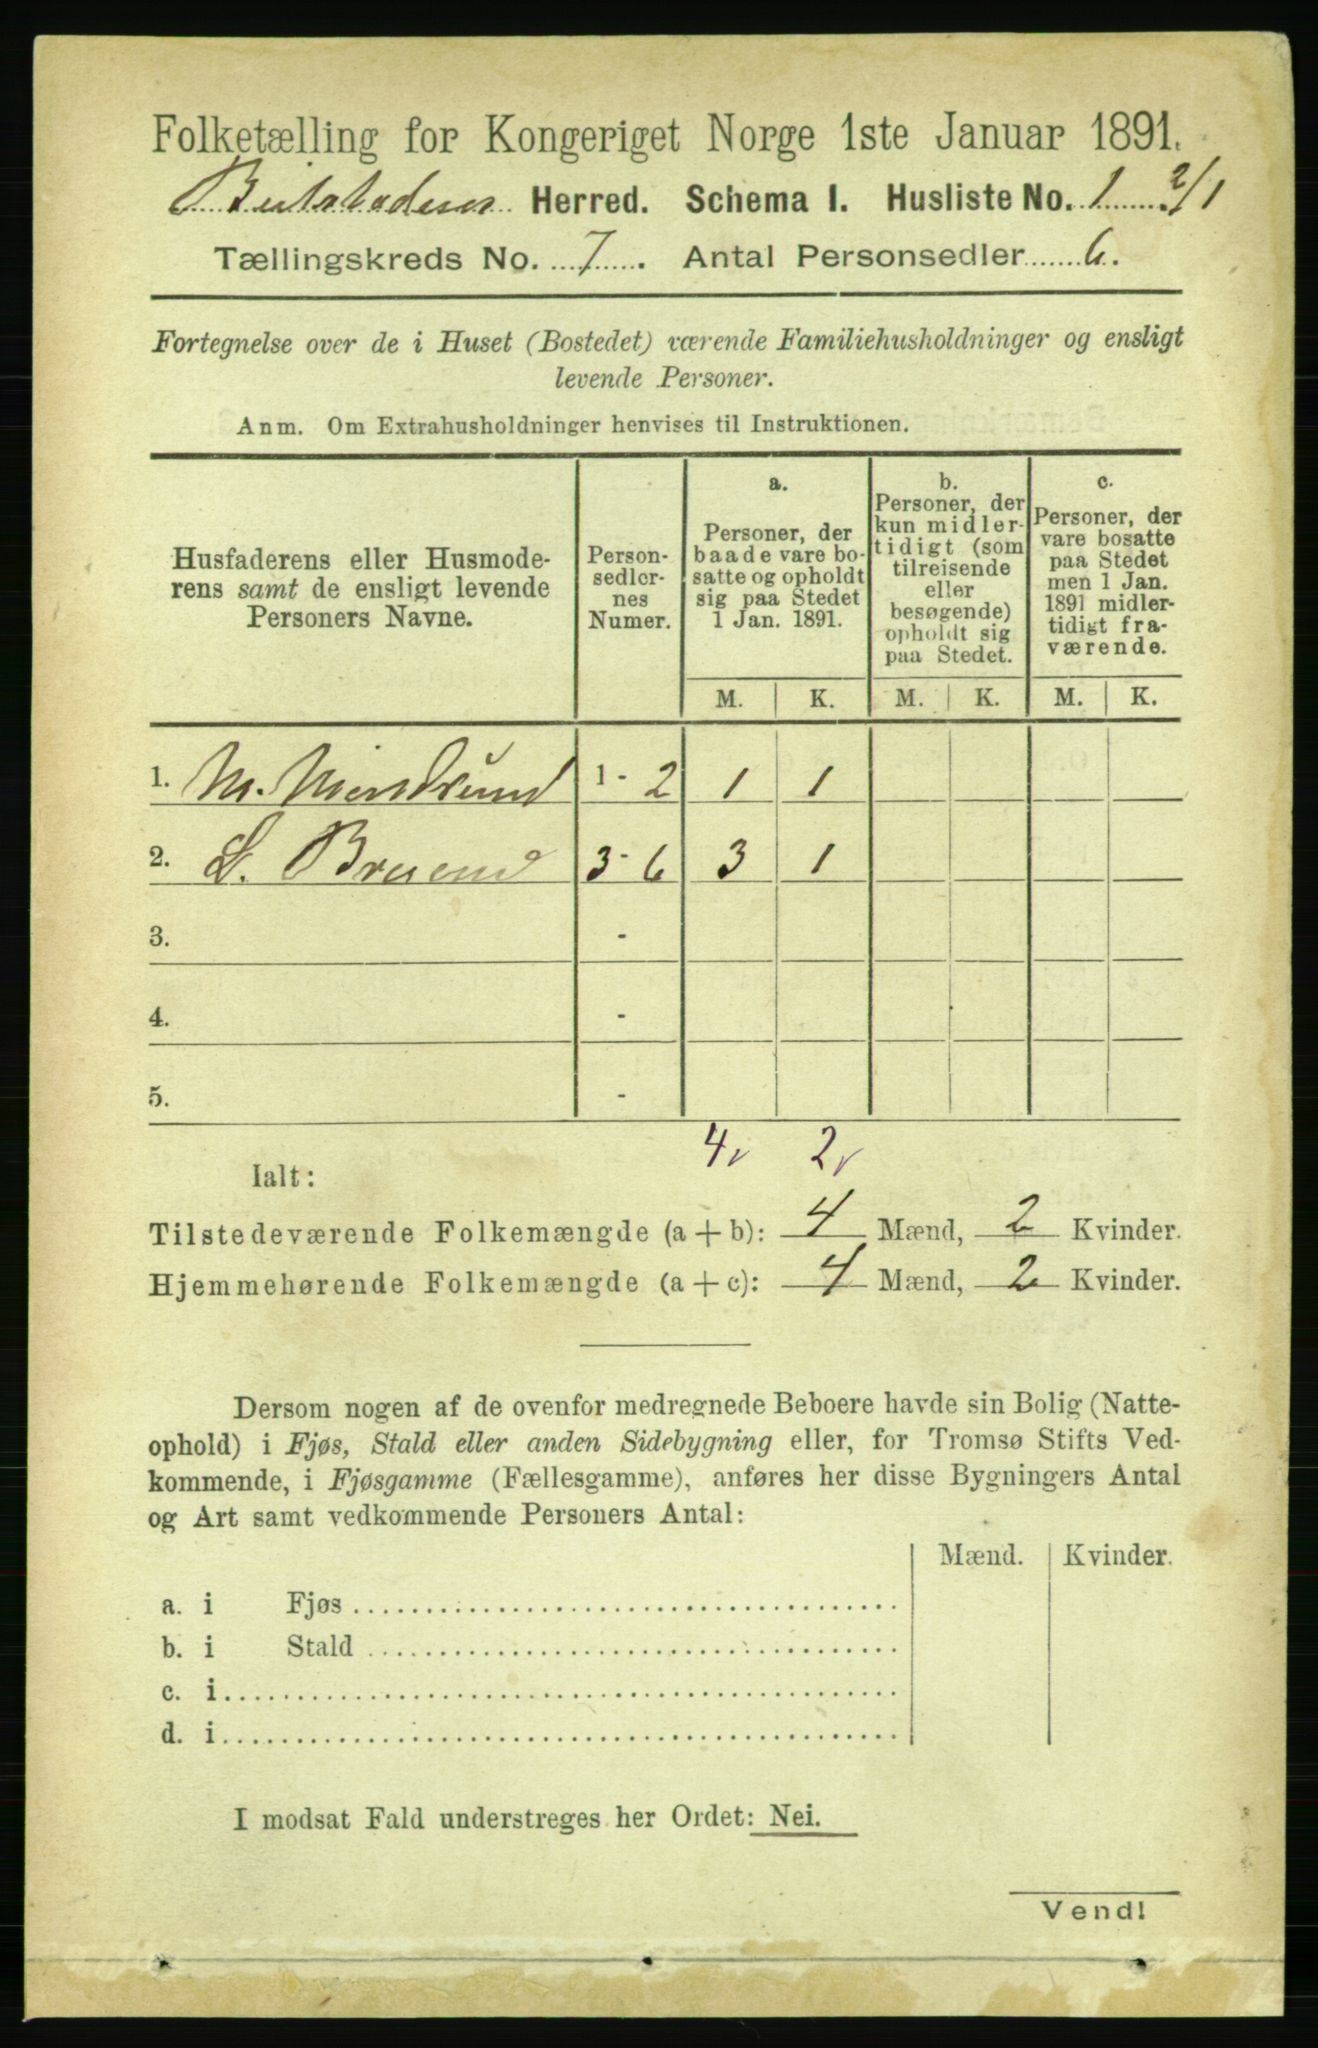 Folketælling for Kongeriget Norge 1ste Januar 1891.
Beitstaden Herred. Schema I. Husliste No. 1 2/1
Tællingskreds No. 7. Antal Personsedler 6.
Fortegnelse over de i Huset (Bostedet) værende Familiehusholdninger og ensligt
levende Personer.
Anm. Om Extrahusholdninger henvises til Instruktionen.
Husfaderens eller Husmode-
rens samt de ensligt levende
Personers Navne.
Person-
sedler-
nes
Numer.
a.
Personer, der
baade vare bo-
satte og opholdt
sig paa Stedet
1 Jan. 1891.
b.
Personer, der
kun midler-
tidigt (som
tilreisende
eller
besøgende)
opholdt sig
paa Stedet.
c.
Personer, der
vare bosatte
paa Stedet
men 1 Jan.
1891 midler-
tidigt fra-
værende.
M. K. M. K. M. K.
1. M. 1 - 2 1 1
2. L. 3 - 6 3 1
3. -
4. -
5. -
4 2
Ialt:
Tilstedeværende Folkemængde (a + b): 4 Mænd, 2 Kvinder.
Hjemmehørende Folkemængde (a + c): 4 Mænd, 2 Kvinder.
Dersom nogen af de ovenfor medregnede Beboere havde sin Bolig (Natte-
ophold) i Fjøs, Stald eller anden Sidebygning eller, for Tromsø Stifts Ved-
kommende, i Fjøsgamme (Fællesgamme), anføres her disse Bygningers Antal
og Art samt vedkommende Personers Antal:
Mænd. Kvinder.
a. i Fjøs
b. i Stald
c. i
d. i
I modsat Fald understreges her Ordet: Nei.
Vend!